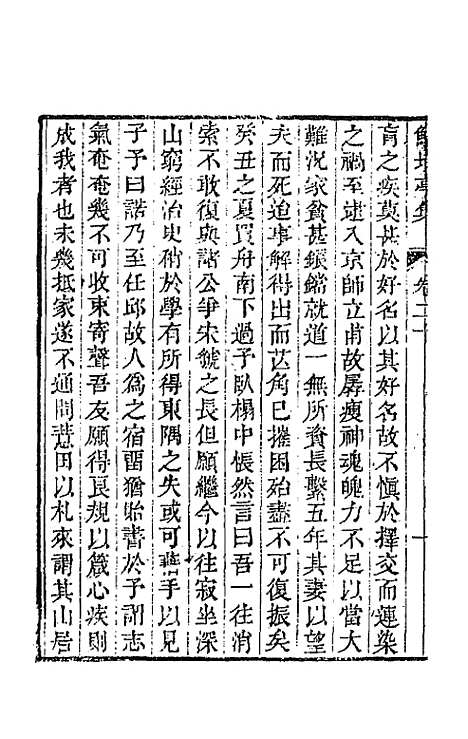 鮚埼亭集 卷二十 一
肓之疾莫甚於好名以其好名故不愼於擇交而連染
之禍至逮入京師立甫故孱瘦神魂魄力不足以當大
難況家貧甚鋃鐺就道一無所資長繫五年其妻以望
夫而死迨事解得出而芒角已摧困殆盡不可復振矣
癸丑之夏買舟南下過予臥榻中悵然言曰吾一往消
索不敢復與諸公爭朱虢之長但願繼今以往寂坐深
山窮經治史稍於學有所得東隅之失或可藉手以見
子予曰諾乃至任邱故人爲之宿畱猶貽書於予謂志
氣奄奄幾不可收束寄聲吾友願得良規以箴心疾則
成我者也未幾抵家遂不通問薏田以札來謂其山居